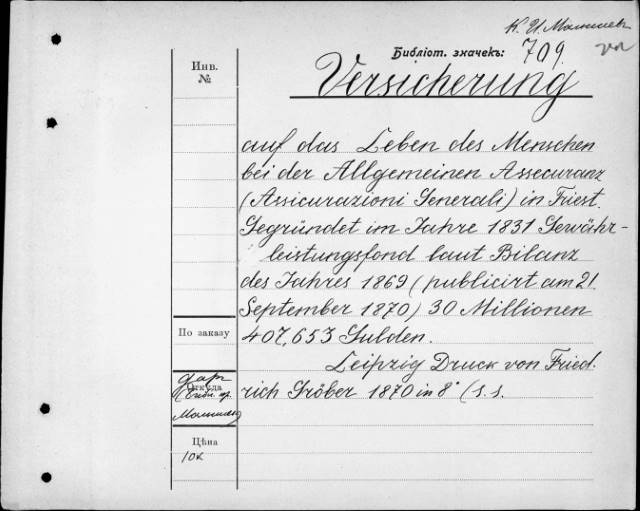 К. И. Малышев
Библіот. значекъ: 709.
Инв.
№
Versicherung
auf das Leben des Menschen
bei der Allgemeinen Assecuranz
(Assicurazioni Generali) in Triest.
Gegründet im Jahre 1831 Gewähr-
leistungsfond laut Bilanz
des Jahres 1869 (publicirt am 21.
September 1870) 30 Millionen
407,653 Gulden.
По заказу
Leipzig Druck von Fried.
rich Gröber 1870 in 8° (s.s.
даръ
Откуда
Малышева
Цѣна
10к